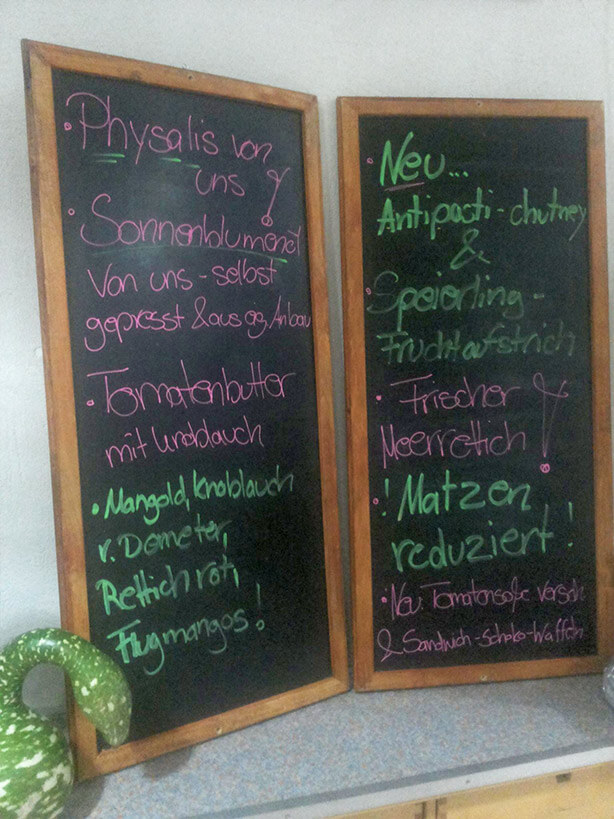 • Physalis von
uns !
• Sonnenblumenöl
von uns - selbst
gepresst & aus eig. Anbau
• Tomatenbutter
mit Knoblauch
• Mangold, Knoblauch
v. Demeter,
Rettich rot,
Flugmangos !
• Neu...
Antipasti - chutney
&
• Speierling -
Fruchtaufstrich
• Frischer !
Meerrettich
! Matzen
reduziert !
• Neu: Tomatensoße versch.
& Sandwich - Schoko - Waffeln